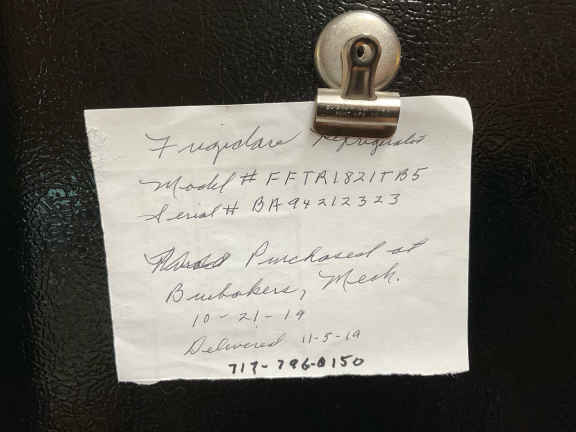 Frigidare Refrigerator
Model # FFTR1821TB5
Serial # BA94212323
Purchased at
Brubakers, Mech.
10-21-19
Delivered 11-5-19
717-796-0150